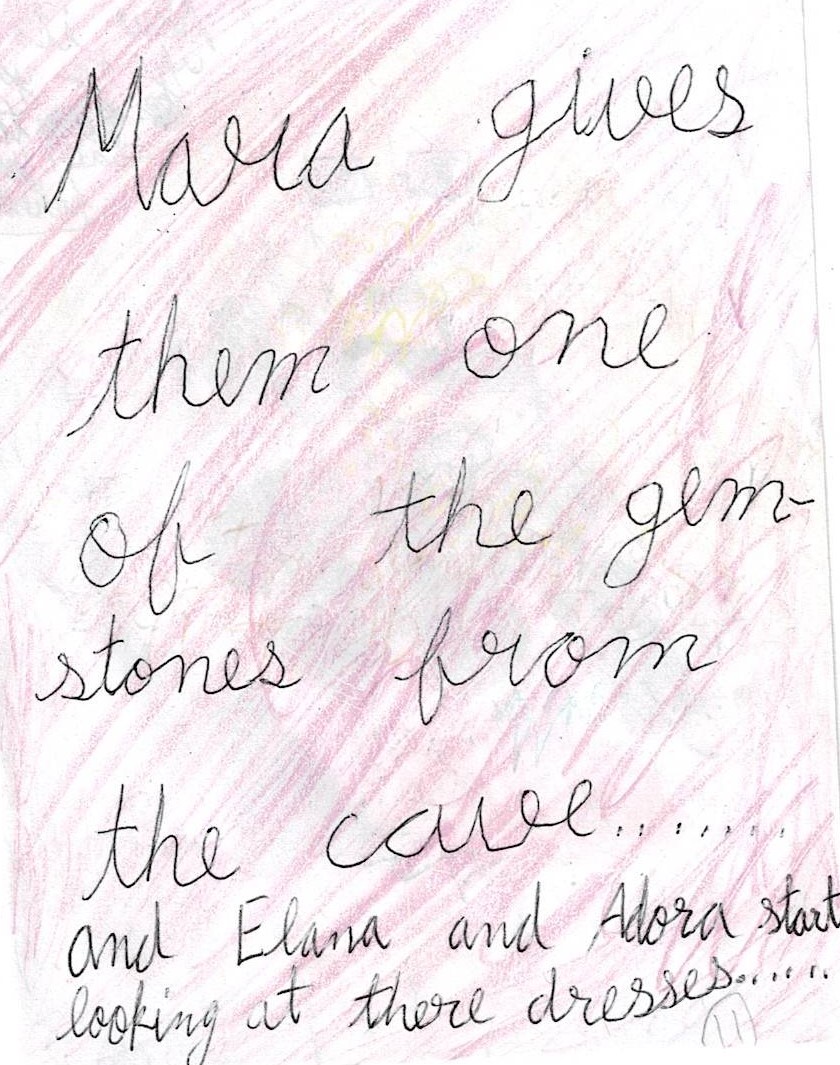 Mara gives
them one
of the gem-
stones from
the cave........
and Elana and Adora start
looking at there dresses......
11